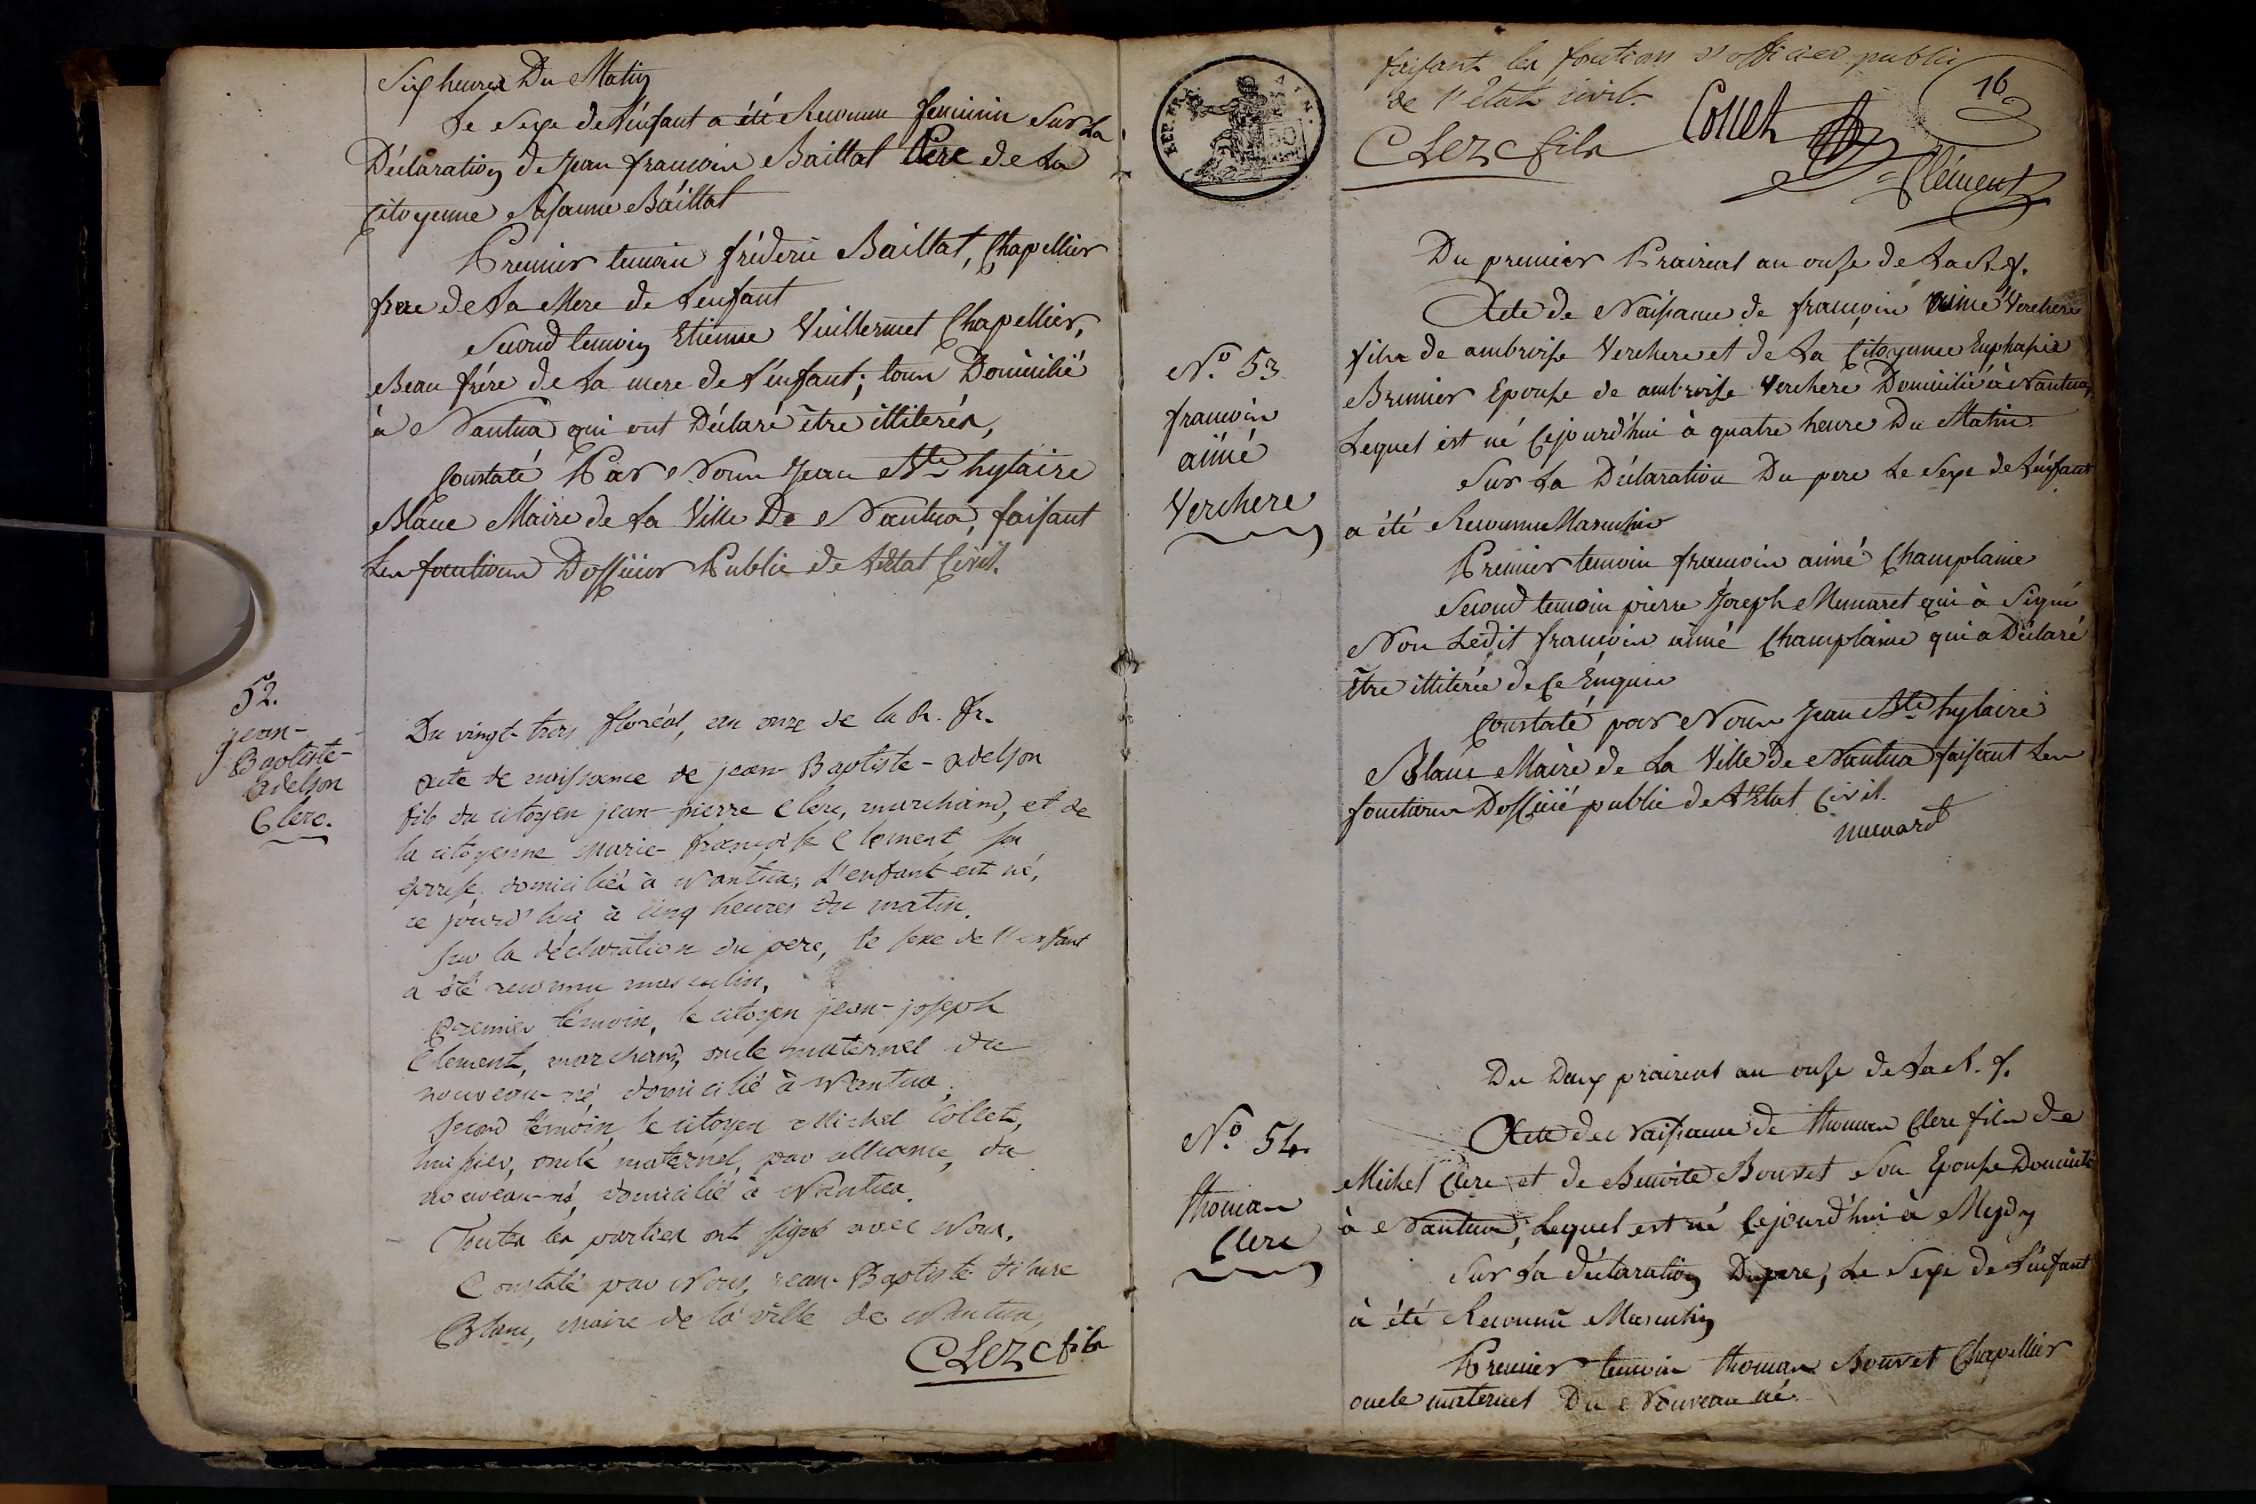 Six heures Du Matin
Le Sexe de L'énfant a été Reconnu feminin Sur La
Déclaration de Jean francois Baillat Pere de La
Citoyenne Susanne Baillat
Premier temoin fréderic Baillat, Chapellier
frere de La Mere de Lenfant
Second temoin Etienne Vuillermet Chapellier,
Beau frére de La mere de L'énfant; tous Domicilié
à Nantua qui ont Déclaré être illiterés,
Constaté Par Nous Jean Bte hylaire
Blanc Maire de La Ville De Nantua, faisant
Les fonctions Dofficier Public de L'Etat Civil.
52.
jean-
Baptiste-
adelson
Clerc.
Du vingt-trois floréal, an onze de la R. fr.
acte de naissance de jean-Baptiste-adelson
fils du citoyen jean-pierre Clerc, marchand, et de
la citoyenne marie-françoise Clement son
épouse, domiciliés à Nantua, L'enfant est né,
ce jourd'hui à cinq heures du matin.
sur la déclaration du pere, le sexe de l'enfant
a été reconnu masculin.
Premier témoin, le citoyen jean-joseph
Clement, marchand, oncle maternel du
nouveau-né, domicilié à Nantua.
second témoin, le citoyen Michel Collet,
huissier, oncle maternel, par alliance, du
nouveau-né, domicilié à Nantua.
Toutes les parties ont signé avec Nous.
Constaté par Nous, jean-Baptiste hilaire
Blanc, maire de la ville de Nantua,
CLERC fils
faisant les fonctions d'officier public
de l'état civil.
16
CLERC fils Collet Clément
REP. FRA.
Du premier Prairial an onze de La R. f.
Acte de Naissance de francois aimé Verchere
fils de ambroise Verchere et de La Citoyenne Euphasie
Brunier Epouse de ambroise Verchere Domicilié à Nantua,
Lequel est né Cejourd'hui à quatre heure Du Matin
Sur La Déclaration Du pere Le Sexe de L'énfant
a été Reconnu Masculin
Premier temoin francois aimé Champlaine
Second temoin pierre Joseph Munaret qui à Signé
Non Ledit francois aimé Champlaine qui a Déclaré
être illiterée de Ce Enquis
Constaté par Nous Jean Bte hylaire
Blanc Maire de La Ville de Nantua faisant Les
fonctions Dofficié public de L'Etat Civil.
N.o 53
francois
aimé
Verchere
Du Deux prairial an onze de La R. f.
Acte de Naissance de thomas Clerc fils de
Michel Clerc et de Benoite Bouvet Son Epouse Domicilié
à Nantua, Lequel est né Cejourd'hui à Mydy
Sur La déclaration Du pere, Le Sexe de L'énfant
à été Reconnu Masculin
Premier temoin thomas Bouvet Chapellier
oncle maternel Du Nouveau né.
N.o 54.
thomas
Clerc